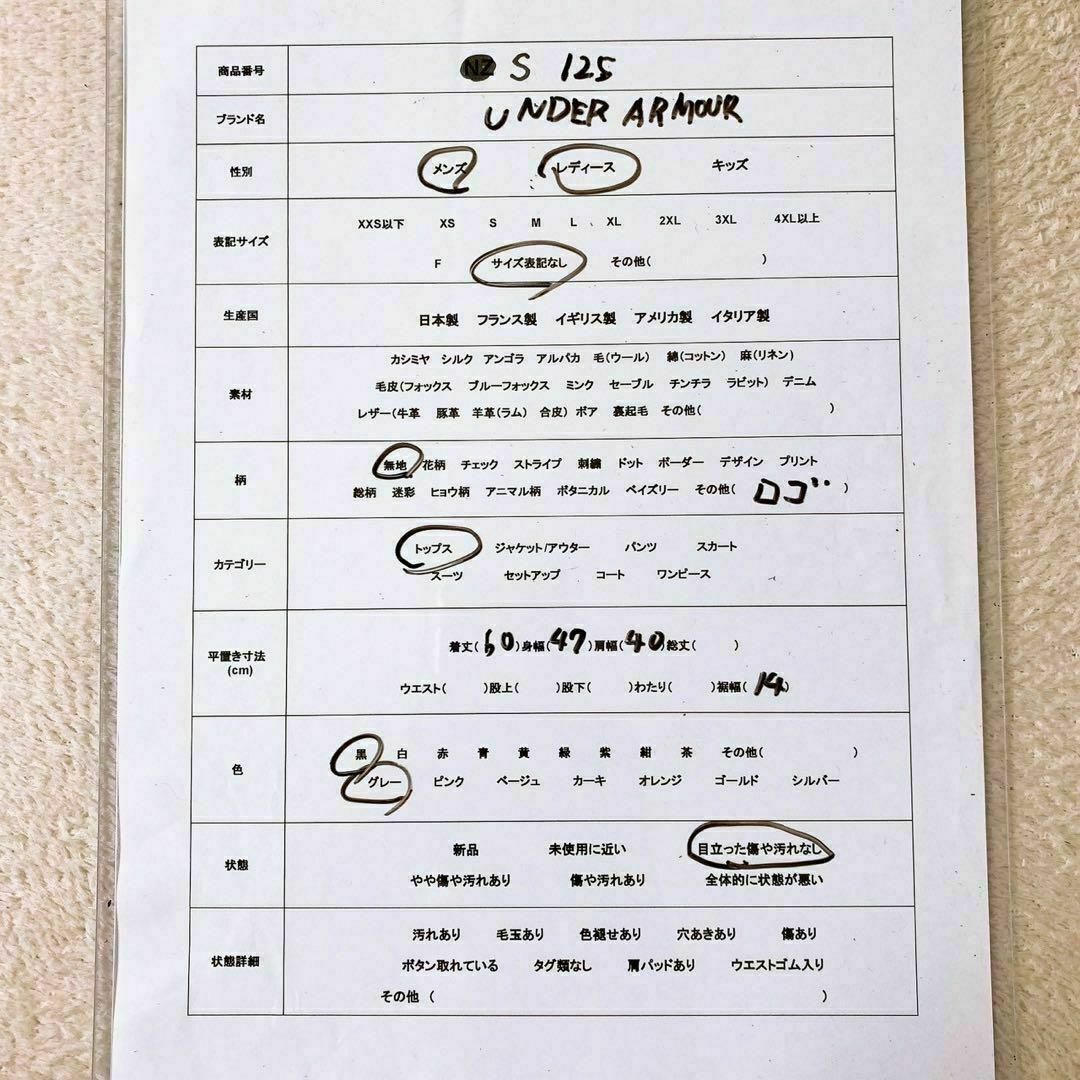 商品番号 NZ S 125
ブランド名 UNDER ARMOUR
性別 メンズ レディース キッズ
表記サイズ XXS以下 XS S M L 、 XL 2XL 3XL 4XL以上
F サイズ表記なし その他( )
生産国 日本製 フランス製 イギリス製 アメリカ製 イタリア製
素材 カシミヤ シルク アンゴラ アルパカ 毛(ウール) 綿(コットン) 麻(リネン)
毛皮(フォックス ブルーフォックス ミンク セーブル チンチラ ラビット) デニム
レザー(牛革 豚革 羊革(ラム) 合皮) ボア 裏起毛 その他( )
柄 無地 花柄 チェック ストライプ 刺繍 ドット ボーダー デザイン プリント
総柄 迷彩 ヒョウ柄 アニマル柄 ボタニカル ペイズリー その他( ロゴ )
カテゴリー トップス ジャケット/アウター パンツ スカート
スーツ セットアップ コート ワンピース
平置き寸法 (cm) 着丈( 60 )身幅( 47 )肩幅( 40 )総丈( )
ウエスト( )股上( )股下( )わたり( )裾幅( 14 )
色 黒 白 赤 青 黄 緑 紫 紺 茶 その他( )
グレー ピンク ベージュ カーキ オレンジ ゴールド シルバー
状態 新品 未使用に近い 目立った傷や汚れなし
やや傷や汚れあり 傷や汚れあり 全体的に状態が悪い
状態詳細 汚れあり 毛玉あり 色褪せあり 穴あきあり 傷あり
ボタン取れている タグ類なし 肩パッドあり ウエストゴム入り
その他 ( )